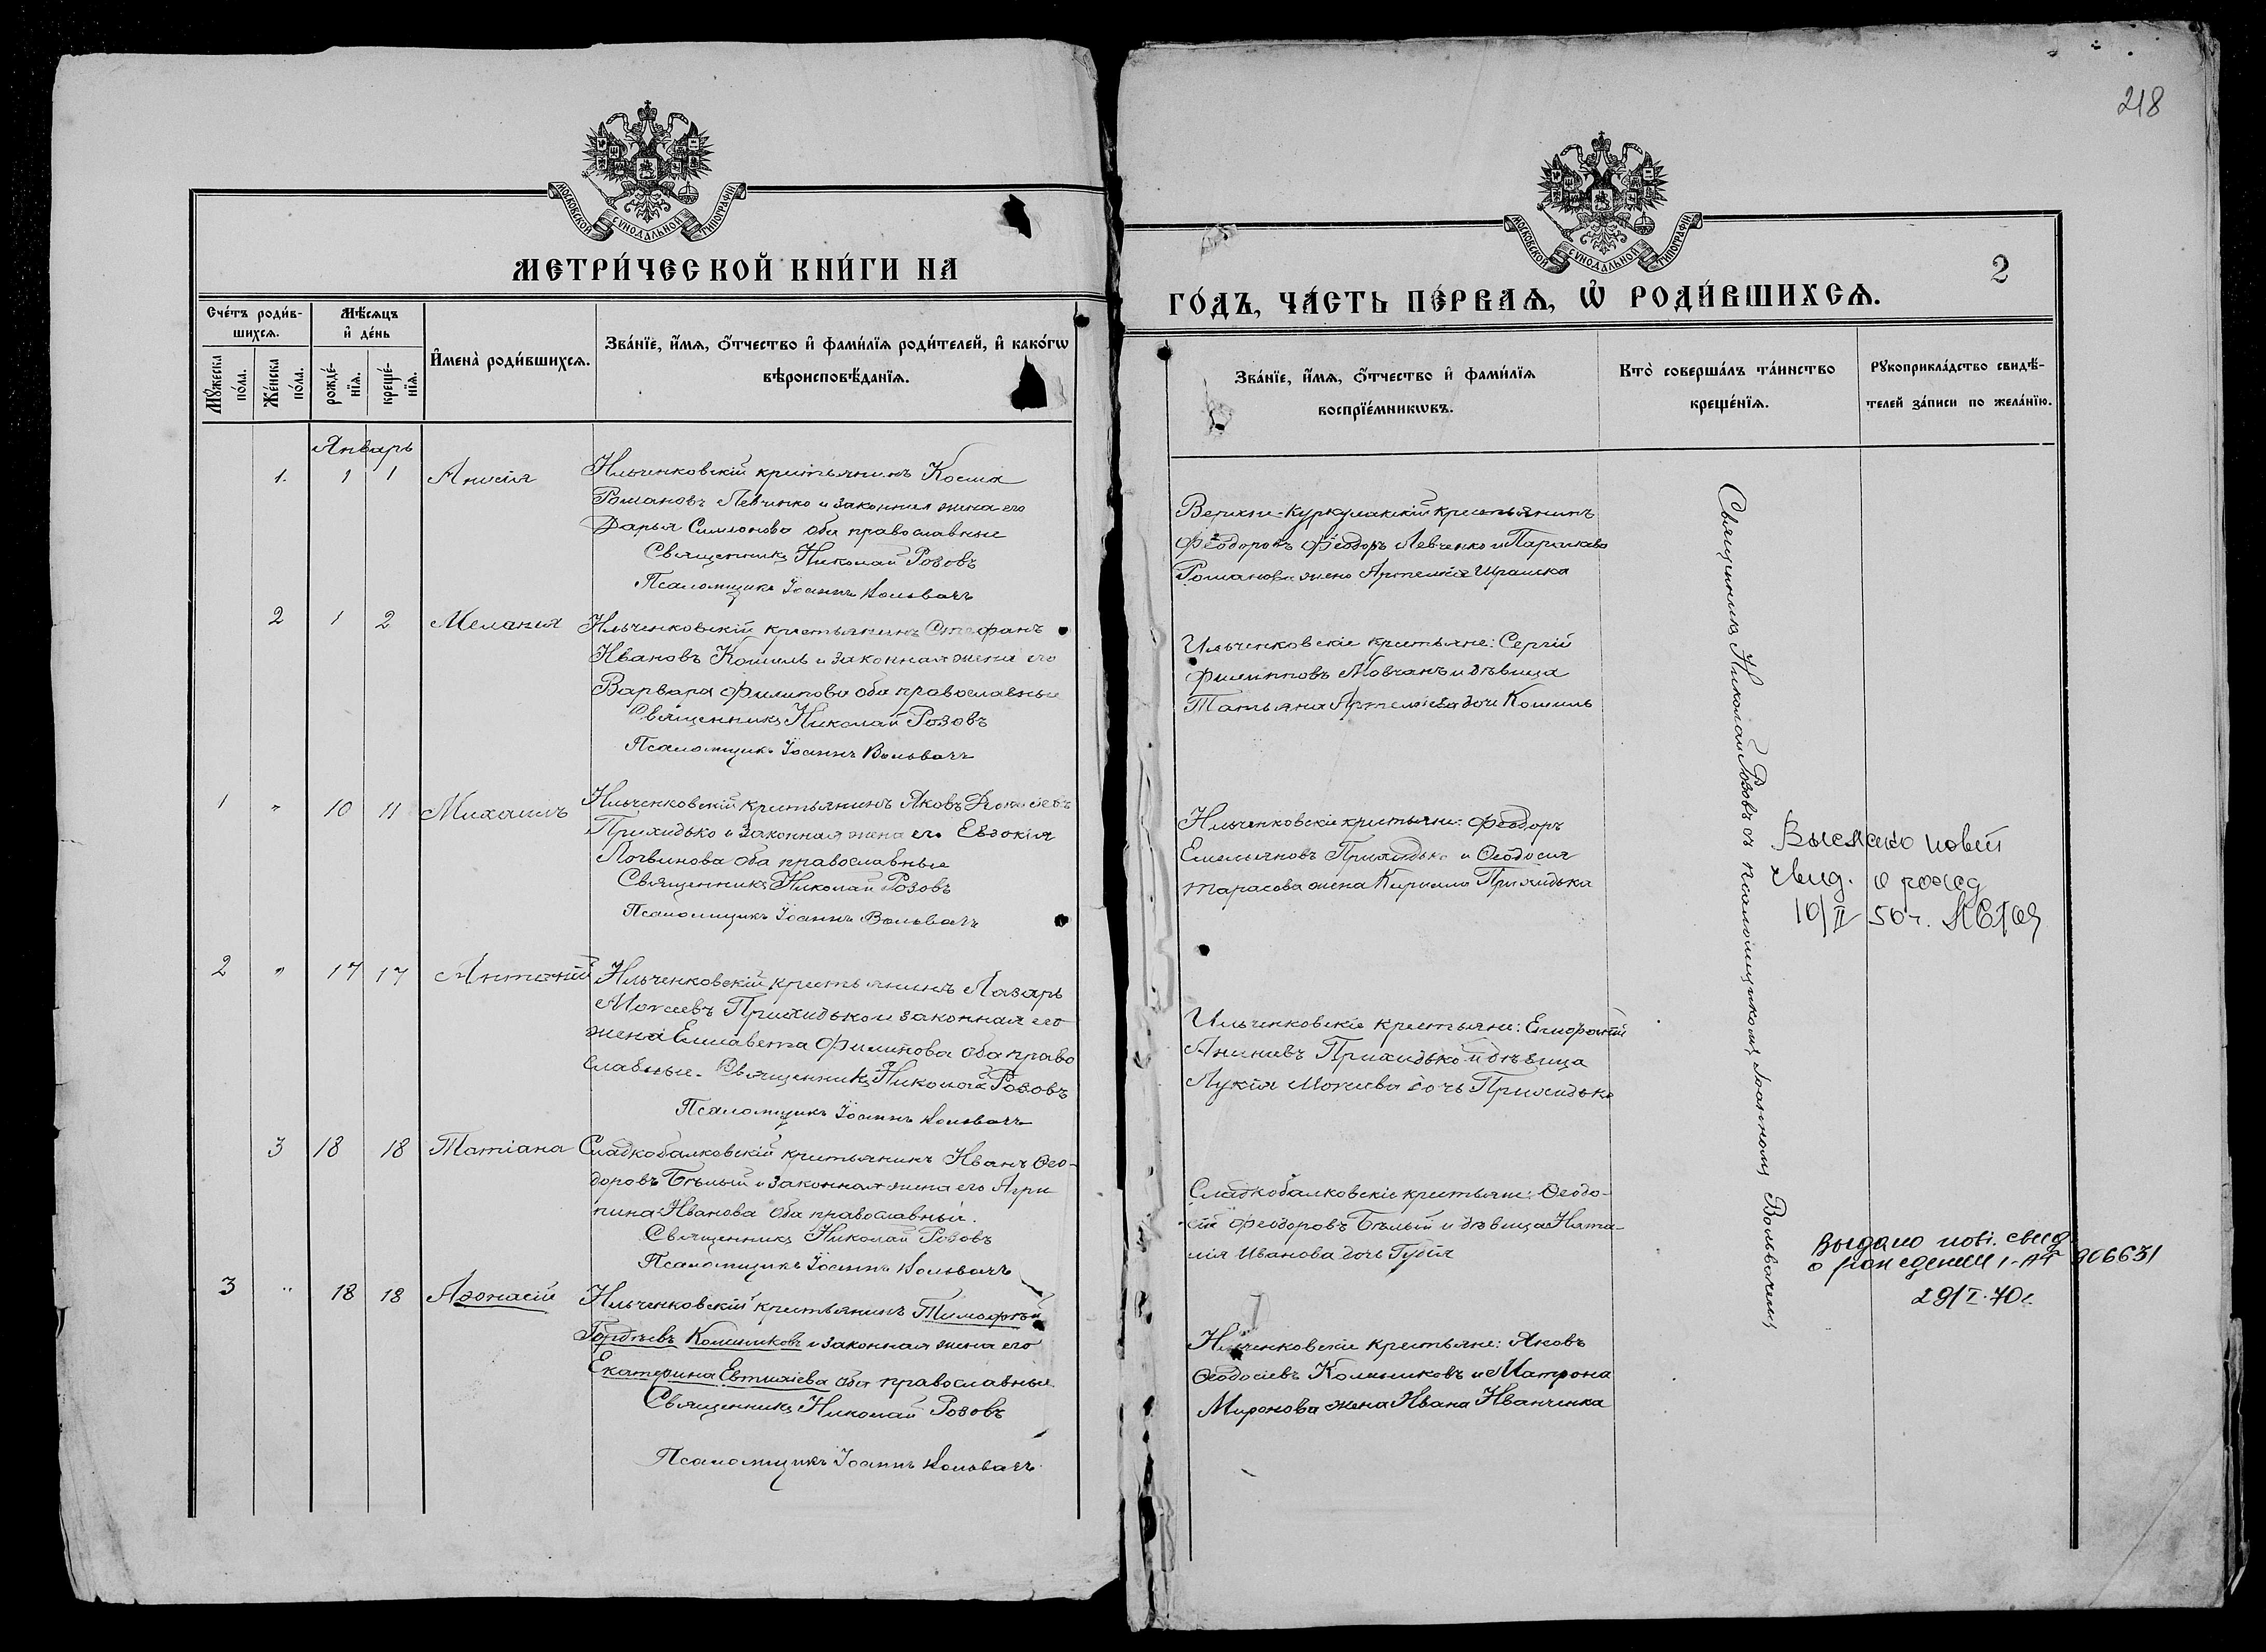 218
МОСКОВСКОЙ СѴНОДАЛЬНОЙ ТИПОГРАФІИ
МЕТРИ́ЧЕСКОЙ КНИ́ГИ НА
Сче́тъ роди́в-
шихсѧ.
Мꙋ́жеска
по́ла.
Же́нска
по́ла.
Мѣ́сѧцъ
и҆ де́нь
рожде́-
нїѧ.
креще́-
нїѧ.
И҆мена̀ роди́вшихсѧ.
Зва́нїе, и҆́мѧ, ѻ҆́тчество и҆ фами́лїѧ роди́телей, и҆ како́гѡ
вѣроисповѣ́данїѧ.
Январь
1. 1 1 Анисія
Ильченковскій крестьянинъ Косма
Романовъ Левченко и законная жена его
Дарья Симеонова оба православные
Священникъ Николай Розовъ
Псаломщикъ Іоаннъ Вольвачъ
2 1 2 Меланія
Ильченковскій крестьянинъ Стефанъ
Ивановъ Кошель и законная жена его
Варвара Филипова оба православные
Священникъ Николай Розовъ
Псаломщикъ Іоаннъ Вольвачъ
1 " 10 11 Михаилъ
Ильченковскій крестьянинъ Яковъ
Приходько и законная жена его Евдокія
Логвинова оба православные
Священникъ Николай Розовъ
Псаломщикъ Іоаннъ Вольвачъ
2 " 17 17 Антоній
Ильченковскій крестьянинъ Лазарь
Мокеевъ Приходько и законная его
жена Елисавета Филипова оба право
славные. Священникъ Николай Розовъ
Псаломщикъ Іоаннъ Вольвачъ
3 18 18 Татіана
Сладкобалковскій крестьянинъ Иванъ Ѳео-
доровъ Бѣлый и законная жена его Агри
пина Иванова оба православные.
Священникъ Николай Розовъ
Псаломщикъ Іоаннъ Вольвачъ
3 " 18 18 Аѳонасій
Ильченковскій крестьянинъ Тимофѣй
Гордѣевъ Колесниковъ и законная жена его
Екатерина Евтихіева оба православные.
Священникъ Николай Розовъ
Псаломщикъ Іоаннъ Вольвачъ
МОСКОВСКОЙ СѴНОДАЛЬНОЙ ТИПОГРАФІИ
2
ГО́ДЪ, ЧА́СТЬ ПЕ́РВАѦ, Ѡ҆ РОДИ́ВШИХСѦ.
Зва́нїе, и҆́мѧ, ѻ҆́тчество и҆ фами́лїѧ
воспрїе́мникѡвъ.
Кто̀ соверша́лъ та́инство
креще́нїѧ.
Рꙋкоприкла́дство свидѣ́-
телей за́писи по жела́нїю.
Верхне-Куркулакскій крестьянинъ
Феодоровъ Феодоръ Левченко и
Романова жена Артемія
Ильченковскіе крестьяне: Сергій
Филипповъ Мовчанъ и дѣвица
Татьяна Артемова дочь Кошель
Ильченковскіе крестьяне: Феодоръ
Емельяновъ Приходько и Ѳеодосія
Тарасова жена Кирилла Приходька
Ильченковскіе крестьяне: Епифаній
Ананіевъ Приходько и дѣвица
Лукія Мокиева дочь Приходько
Сладкобалковскіе крестьяне: Ѳеодо-
сій Феодоровъ Бѣлый и дѣвица Ната-
лія Иванова дочь Губія
Ильченковскіе крестьяне: Яковъ
Ѳеодосіевъ Колесниковъ и Матрона
Миронова жена Ивана Иванченка
Священникъ Николай Розовъ съ псаломщикомъ Іоанномъ Вольвачемъ
свид. о рожд
10/II 50 г.
Выдано повт. свид.
о рождении 906631
29/I.70г.